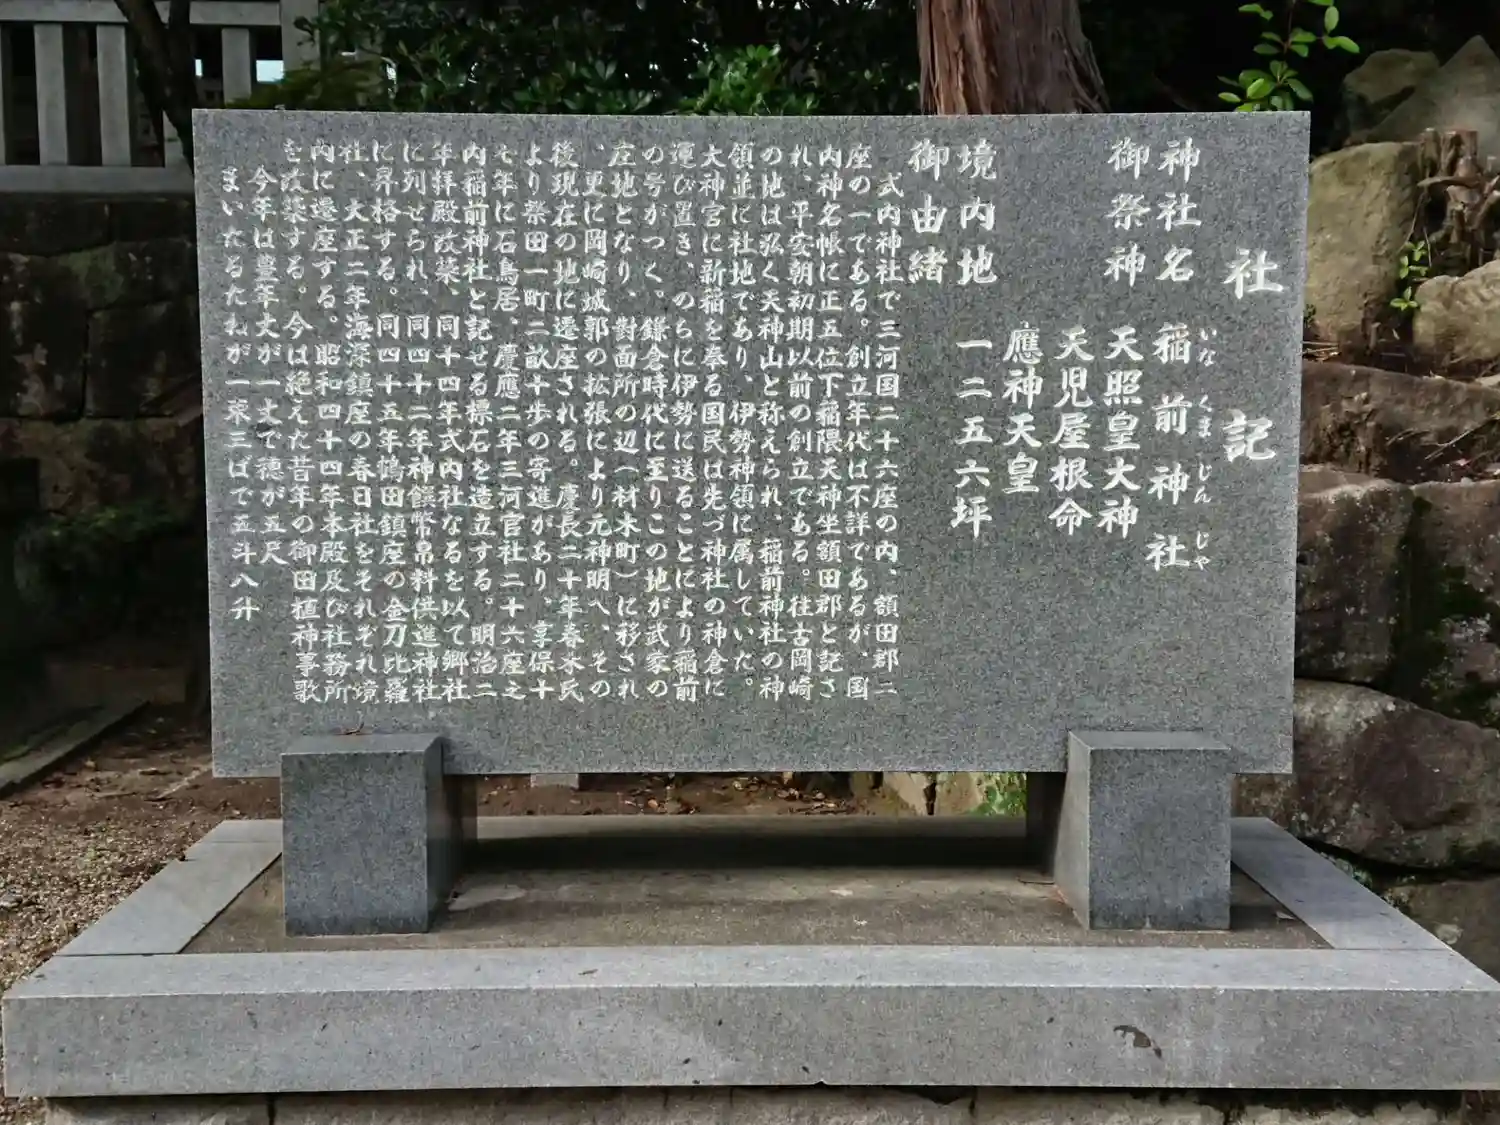 社記
神社名 稲前神社
いな くま じん じや
御祭神 天照皇大神
天児屋根命
應神天皇
境内地 一二五六坪
御由緒
式内神社で三河国二十六座の内、額田郡二
座の一である。創立年代は不詳であるが、国
内神名帳に正五位下稲隈天神坐額田郡と記さ
れ、平安朝初期以前の創立である。往古岡崎
の地は弘く天神山と称えられ、稲前神社の神
領並に社地であり、伊勢神領に属していた。
大神宮に新稲を奉る国民は先づ神社の神倉に
運び置き、のちに伊勢に送ることにより稲前
の号がつく。鎌倉時代に至りこの地が武家の
庄地となり、對面所の辺(材木町)に移され
、更に岡崎城郭の拡張により元神明へ、その
後現在の地に遷座される。慶長二十年春本氏
より祭田一町二畝十歩の寄進があり、享保十
七年に石鳥居、慶應二年三河官社二十六座之
内稲前神社と記せる標石を造立する。明治二
年拝殿改築、同十四年式内社なるを以て郷社
に列せられ、同四十二年神饌幣帛料供進神社
に昇格する。同四十五年鶴田鎮座の金刀比羅
社、大正二年海深鎮座の春日社をそれぞれ境
内に遷座する。昭和四十四年本殿及び社務所
を改築する。今は絶えた昔年の御田植神事歌
今年は豊年丈が一丈で穂が五尺
まいたるたねが一束三ばで五斗八升